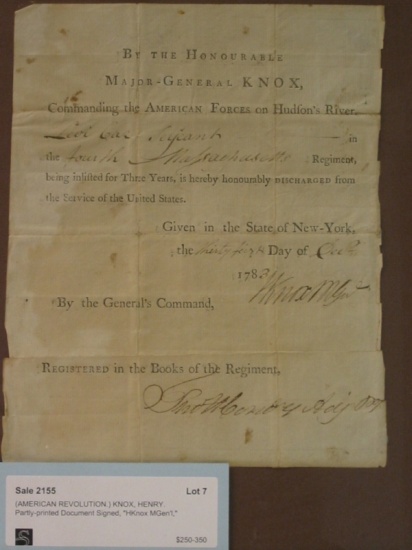 By the Honourable
Major-General KNOX,
Commanding the American Forces on Hudson's River.
Serjeant in
the fourth Massachusetts Regiment,
being inlisted for Three Years, is hereby honourably DISCHARGED from
the Service of the United States.
Given in the State of New-York,
the Day of
1783
HKnox MGen
By the General's Command,
Registered in the Books of the Regiment,
Adjt
Sale 2155 Lot 7
(AMERICAN REVOLUTION.) KNOX, HENRY
Partly-printed Document Signed, "HKnox MGen'l,"
$250-350